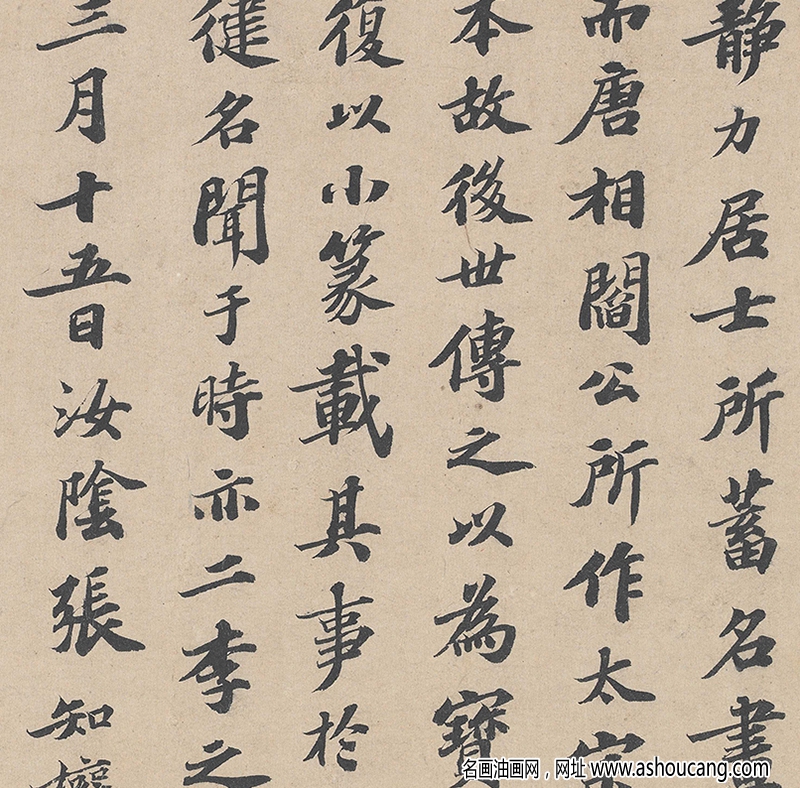 靜力居士所蓄名畫
而唐相閻公所作太宗
本故後世傳之以為寶
復以小篆載其事於
徤名聞于時亦二李之
三月十五日汝陰張知權
名画油画网，网址 www.ashoucang.com